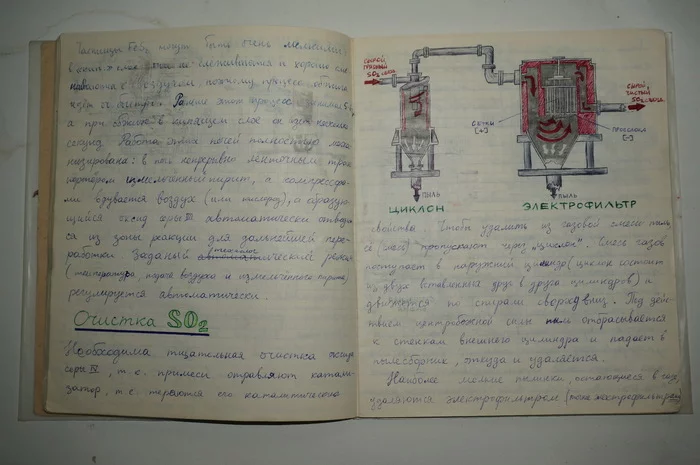 Частицы FeS₂ могут быть очень мелкими
в кипящем слое они не слеживаются и хорошо сме
шиваются с воздухом, поэтому процесс обжига
идёт очень быстро. Раньше этот процесс занимал 5 ч,
а при обжиге в кипящем слое он идёт несколько
секунд. Работа этих печей полностью меха-
низирована: в печь непрерывно ленточным тран
спортёром измельчённый пирит, а компрессоро-
ми вдувается воздух (или кислород), а образую-
щийся оксид серы IV автоматически отводит-
ся из зоны реакции для дальнейшей пере-
работки. Заданный технологический режим
(температура, подача воздуха и измельчённого пирита)
регулируется автоматически.
Очистка SO₂
Необходима тщательная очистка оксида
серы IV, т.к. примеси отравляют катали-
затор, т.е. теряются его каталитические
СЫРОЙ,
ГРЯЗНЫЙ
SO₂
СЫРОЙ,
ЧИСТЫЙ
SO₂
СЕТКИ
[+]
ПРОВОЛОКА
[-]
ПЫЛЬ
ПЫЛЬ
ЦИКЛОН
ЭЛЕКТРОФИЛЬТР
свойства. Чтобы удалить из газовой смеси пыль
её пропускают через "циклон". Смесь газов
поступает в наружный цилиндр (циклон состоит
из двух вставленных друг в друга цилиндров) и
движется по спирали сверху вниз. Под дей-
ствием центробежной силы пыль отбрасывается
к стенкам внешнего цилиндра и падает в
пылесборник, откуда и удаляется.
Наиболее мелкие пылинки, остающиеся в газе,
удаляются электрофильтром